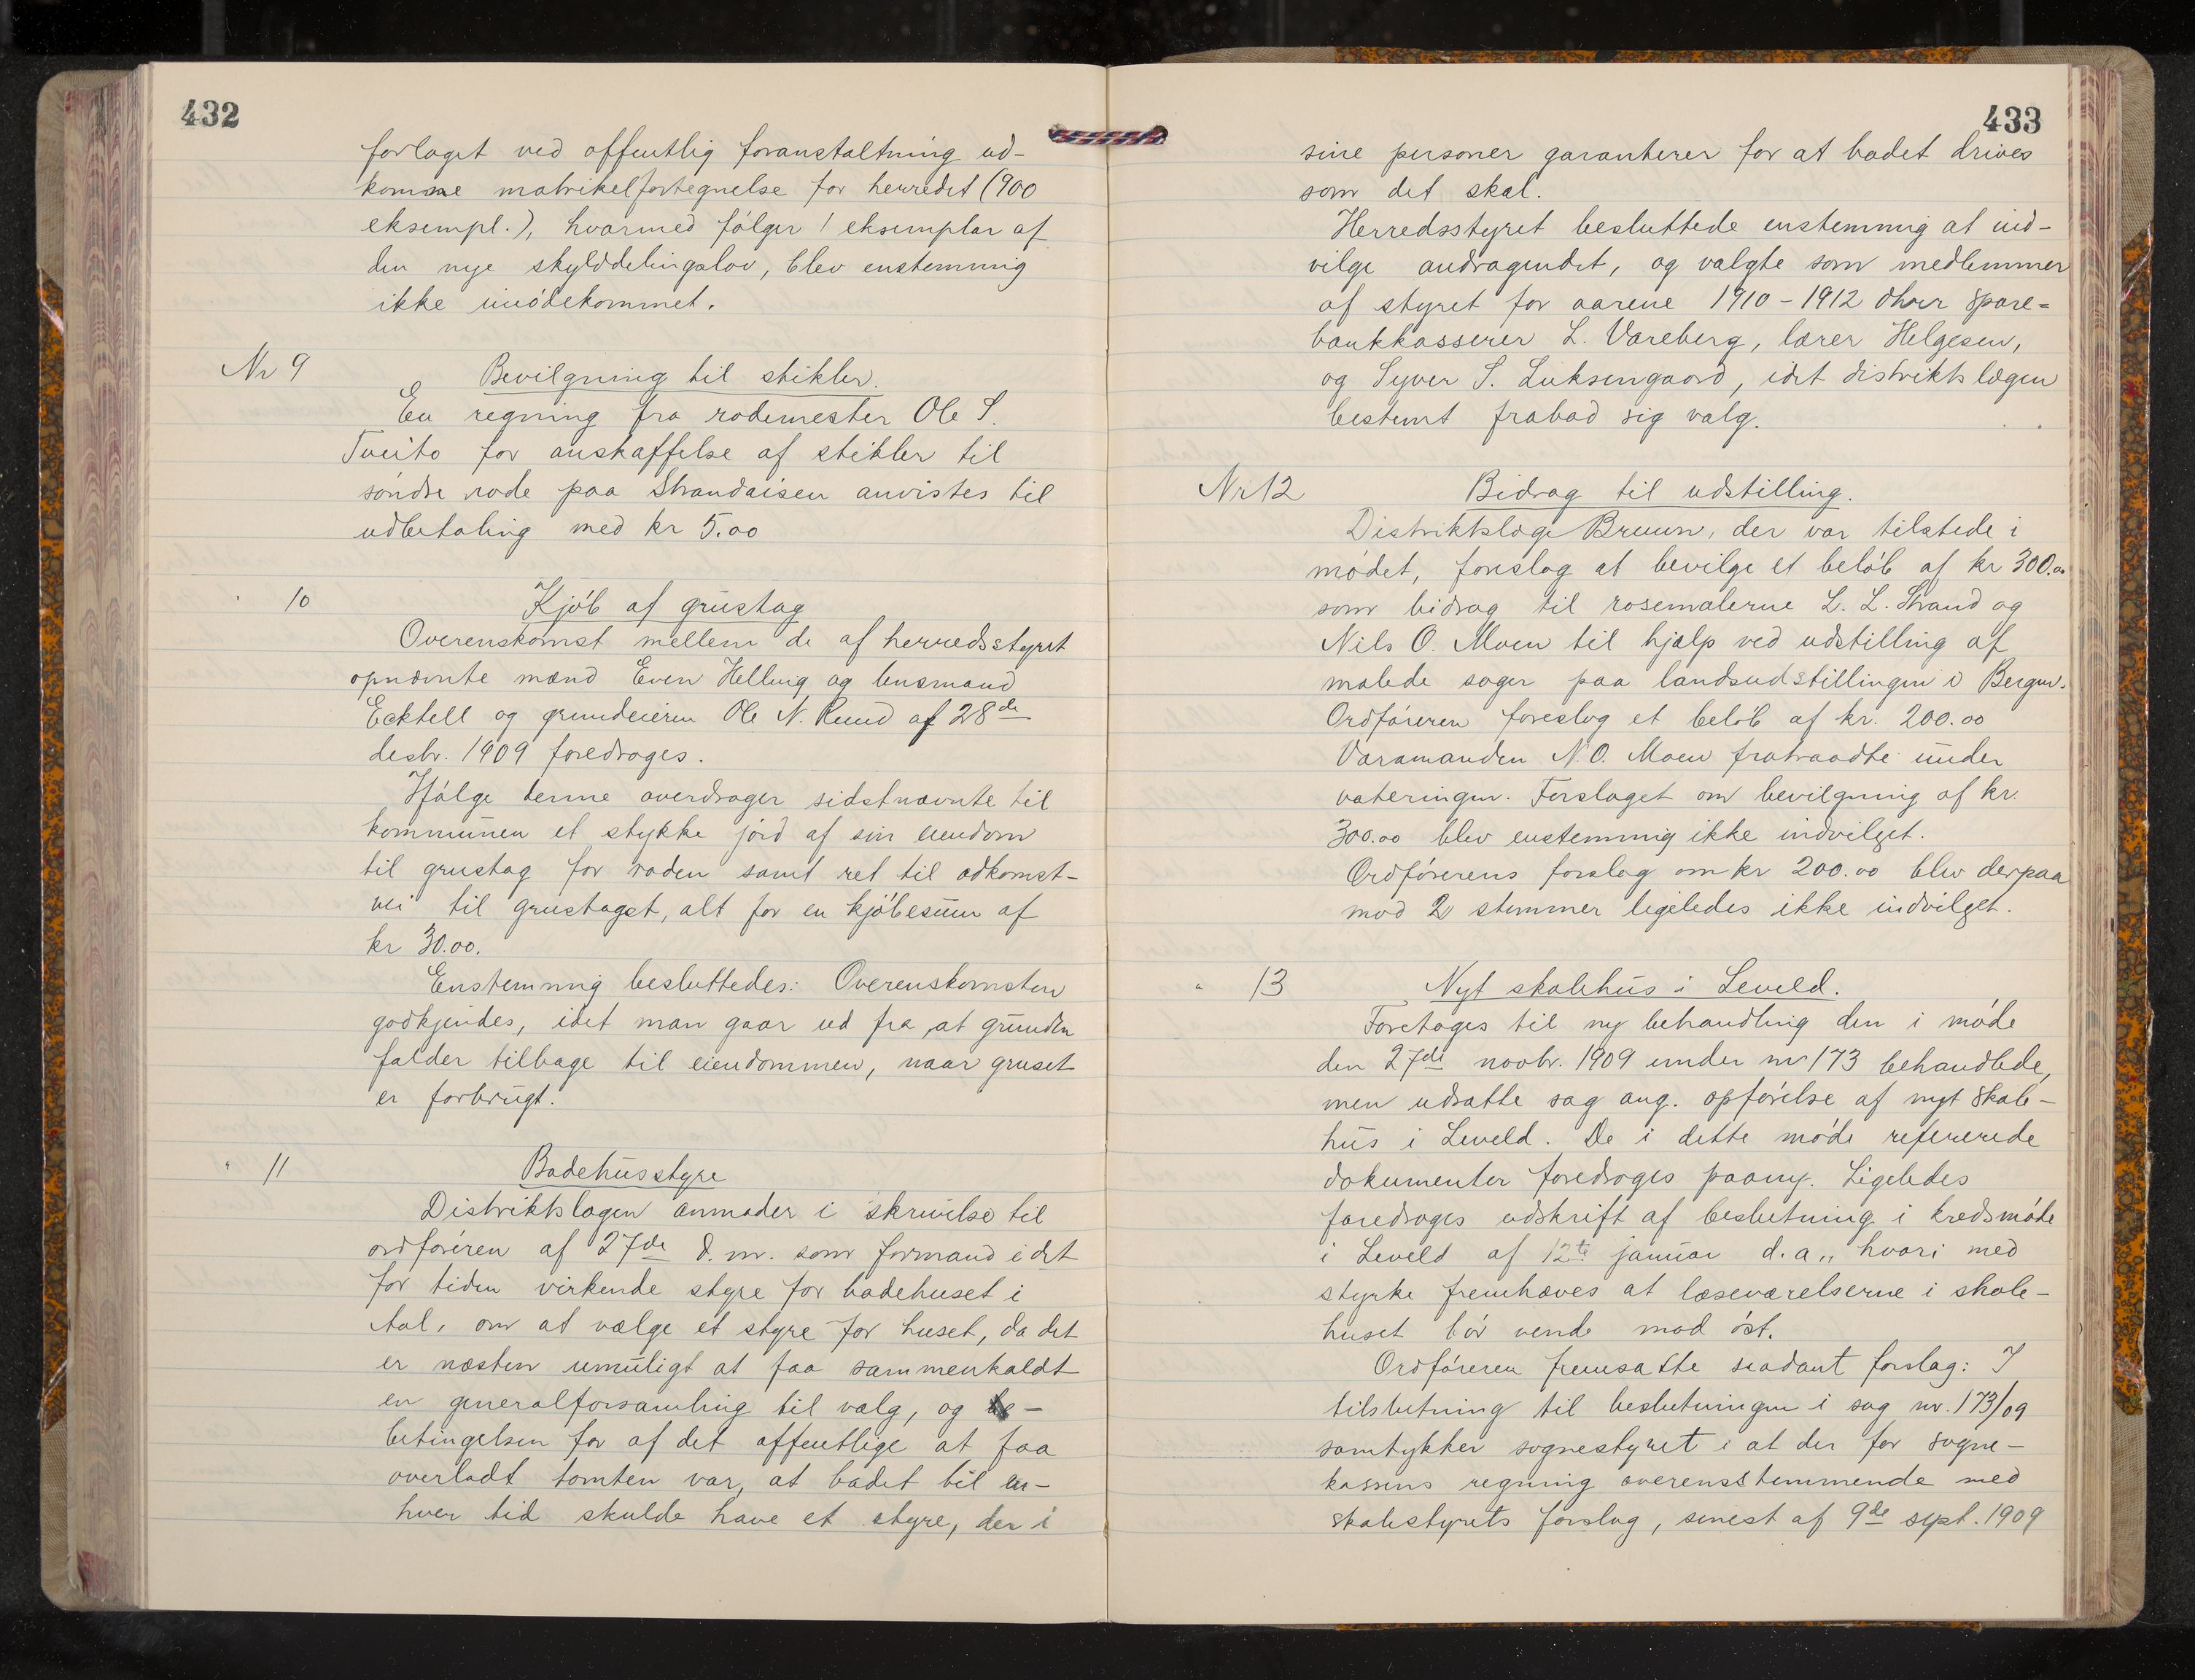 432
forlaget ved offentlig foranstaltning ud-
komne matrikelfortegnelse for herredet (900
eksempl.), hvormed følger 1 eksemplar af
den nye skylddelingslov, blev enstemmig
ikke imødekommet.
Nr 9
Bevilgning til stikler.
En regning fra rodemester Ole S.
Tveito for anskaffelse af stikler til
søndre rode paa Strandaisen anvistes til
udbetaling med kr 5.00
" 10
Kjøb af grustag
Overenskomst mellem de af herredsstyret
opnævnte mænd Even Helling og lensmand
Ecktell og grundeieren Ole N. Ruud af 28de
desbr. 1909 foredroges.
Ifølge denne overdrager sidstnævnte til
kommunen et stykke jord af sin eiendom
til grustag for roden samt ret til adkomst-
vei til grustaget, alt for en kjøbesum af
kr 30.00.
Enstemmig besluttedes: Overenskomsten
godkjendes, idet man gaar ud fra, at grunden
falder tilbage til eiendommen, naar gruset
er forbrugt.
" 11
Badehusstyre
Distriktslægen anmoder i skrivelse til
ordføreren af 27de d.m. som formand i det
for tiden virkende styre for badehuset i
Aal, om at vælge et styre for huset, da det
er næsten umuligt at faa sammenkaldt
en generalforsamling til valg, og
betingelsen for af det offentlige at faa
overladt tomten var, at badet til en-
hver tid skulde have et styre, der i
433
sine personer garanterer for at badet drives
som det skal.
Herredsstyret besluttede enstemmig at ind-
vilge andragendet, og valgte som medlemmer
af styret for aarene 1910-1912 dhrr spare=
bankkasserer L. Vareberg, lærer Helgesen,
og Syver S. Luksengaard, idet distriktslægen
bestemt frabad sig valg.
Nr 12
Bidrag til udstilling.
Distriktslæge Bruun, der var tilstede i
mødet, foreslog at bevilge et beløb af kr 300.00
som bidrag til rosemalerne L. L. Strand og
Nils O. Moen til hjælp ved udstilling af
malede sager paa landsudstillingen i Bergen.
Ordføreren foreslog et beløb af kr. 200.00
Varamanden N.O. Moen fratraadte under
voteringen. Forslaget om bevilgning af kr.
300.00 blev enstemmig ikke indvilget.
Ordførerens forslag om kr 200.00 blev derpaa
mod 2 stemmer ligeledes ikke indvilget.
" 13
Nyt skolehus i Leveld.
Foretoges til ny behandling den i møde
den 27de novbr. 1909 under nr 173 behandlede,
men udsatte sag ang. opførelse af nyt skole-
hus i Leveld. De i dette møde refererede
dokumenter foredroges paany. Ligeledes
foredroges udskrift af beslutning i kredsmøde
i Leveld af 12te januar d.a., hvori med
styrke fremhæves at læseværelserne i skole-
huset bør vende mod øst.
Ordføreren fremsatte saadant forslag: I
tilslutning til beslutningen i sag nr. 173/09
samtykker sognestyret i at der for sogne-
kassens regning overensstemmende med
skolestyrets forslag, senest af 9de sept. 1909